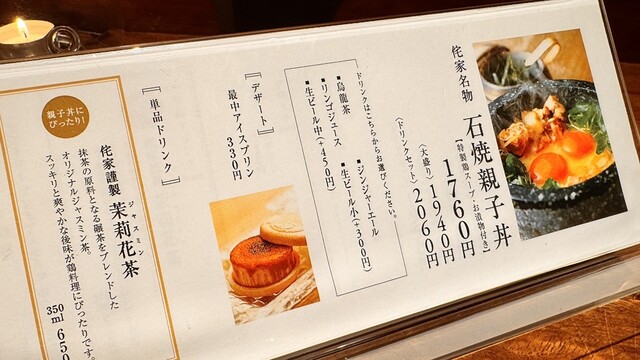 侘家名物
石焼親子丼
【特製鶏スープ・お漬物付き】
1760円
(大盛り) 1940円
(ドリンクセット) 2060円
ドリンクはこちらからお選びください。
■烏龍茶
■ジンジャーエール
■リンゴジュース
■生ビール小(+300円)
■生ビール中(+450円)
『デザート』
最中アイスプリン
330円
『単品ドリンク』
親子丼に
ぴったり!
侘家謹製 茉莉花茶
ジャスミン
抹茶の原料となる碾茶をブレンドした
オリジナルジャスミン茶。
スッキリと爽やかな後味が鶏料理にぴったりです。
350ml 650